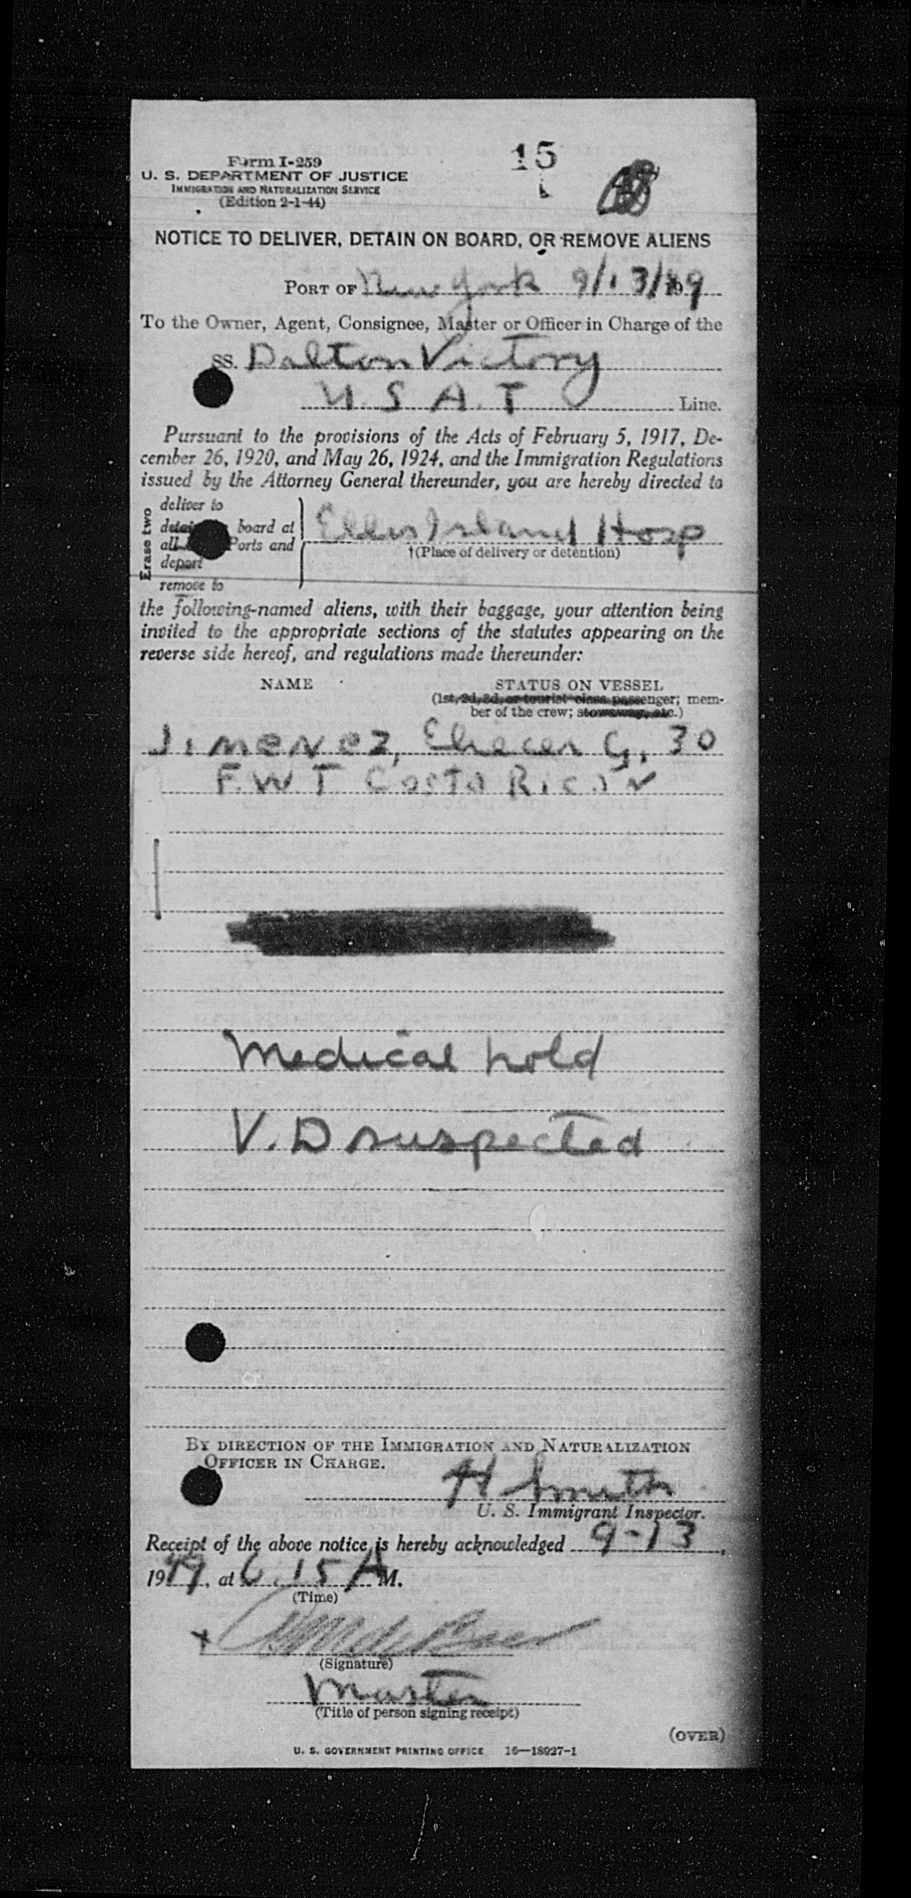 15
Form I-259
U. S. DEPARTMENT OF JUSTICE
IMMIGRATION AND NATURALIZATION SERVICE
(Edition 2-1-44)
NOTICE TO DELIVER, DETAIN ON BOARD, OR REMOVE ALIENS
PORT OF New York 9/13/49
To the Owner, Agent, Consignee, Master or Officer in Charge of the
SS. Dalton Victory
U. S. A. T Line.
Pursuant to the provisions of the Acts of February 5, 1917, De-
cember 26, 1920, and May 26, 1924, and the Immigration Regulations
issued by the Attorney General thereunder, you are hereby directed to
Erase two
deliver to
board at
Ports and
deport
remove to
Ellis Island Hosp
†(Place of delivery or detention)
the following-named aliens, with their baggage, your attention being
invited to the appropriate sections of the statutes appearing on the
reverse side hereof, and regulations made thereunder:
NAME STATUS ON VESSEL
(1st, 2d, 3d, or tourist class passenger; mem-
ber of the crew; stowaway, etc.)
Jimenez, Eliecer G, 30
F.W.T Costa Rican
Medical hold
V. D suspected
BY DIRECTION OF THE IMMIGRATION AND NATURALIZATION
OFFICER IN CHARGE.
H Smith
U. S. Immigrant Inspector.
Receipt of the above notice is hereby acknowledged 9-13,
1949, at 6.15 A M.
(Time)
(Signature)
Master
(Title of person signing receipt)
(OVER)
U. S. GOVERNMENT PRINTING OFFICE 16—18927-1